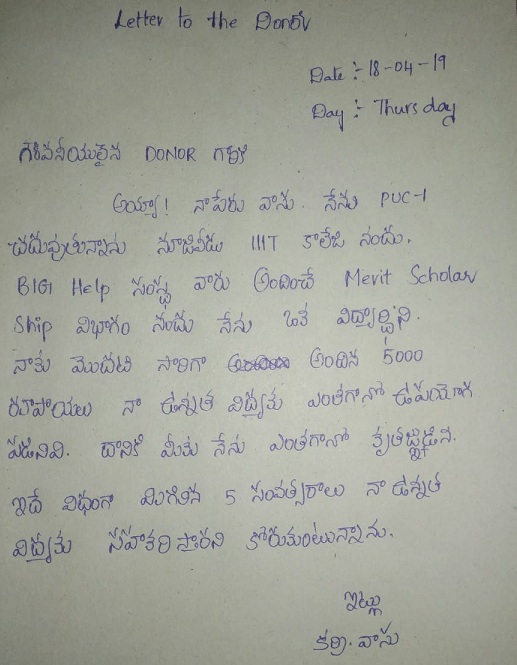 Letter to the Donor
Date :- 18-04-19
Day :- Thursday
గౌరవనీయులైన DONOR గారికి
అయ్యా! నాపేరు వాసు. నేను PUC-1
చదువుతున్నాను నూజివీడు IIIT కాలేజి నందు.
BIG Help సంస్థ వారు అందించే Merit Scholar
Ship విభాగం నందు నేను ఒక విద్యార్థిని.
నాకు మొదటి సారిగా అందిన 5000
రూపాయలు నా ఉన్నత విద్యకు ఎంతగానో ఉపయోగ
పడినవి. దానికి మీకు నేను ఎంతగానో కృతజ్ఞుడిని.
ఇదే విధంగా మిగిలిన 5 సంవత్సరాలు నా ఉన్నత
విద్యకు సహాకరిస్తారని కోరుకుంటున్నాను.
ఇట్లు
కర్రి. వాసు